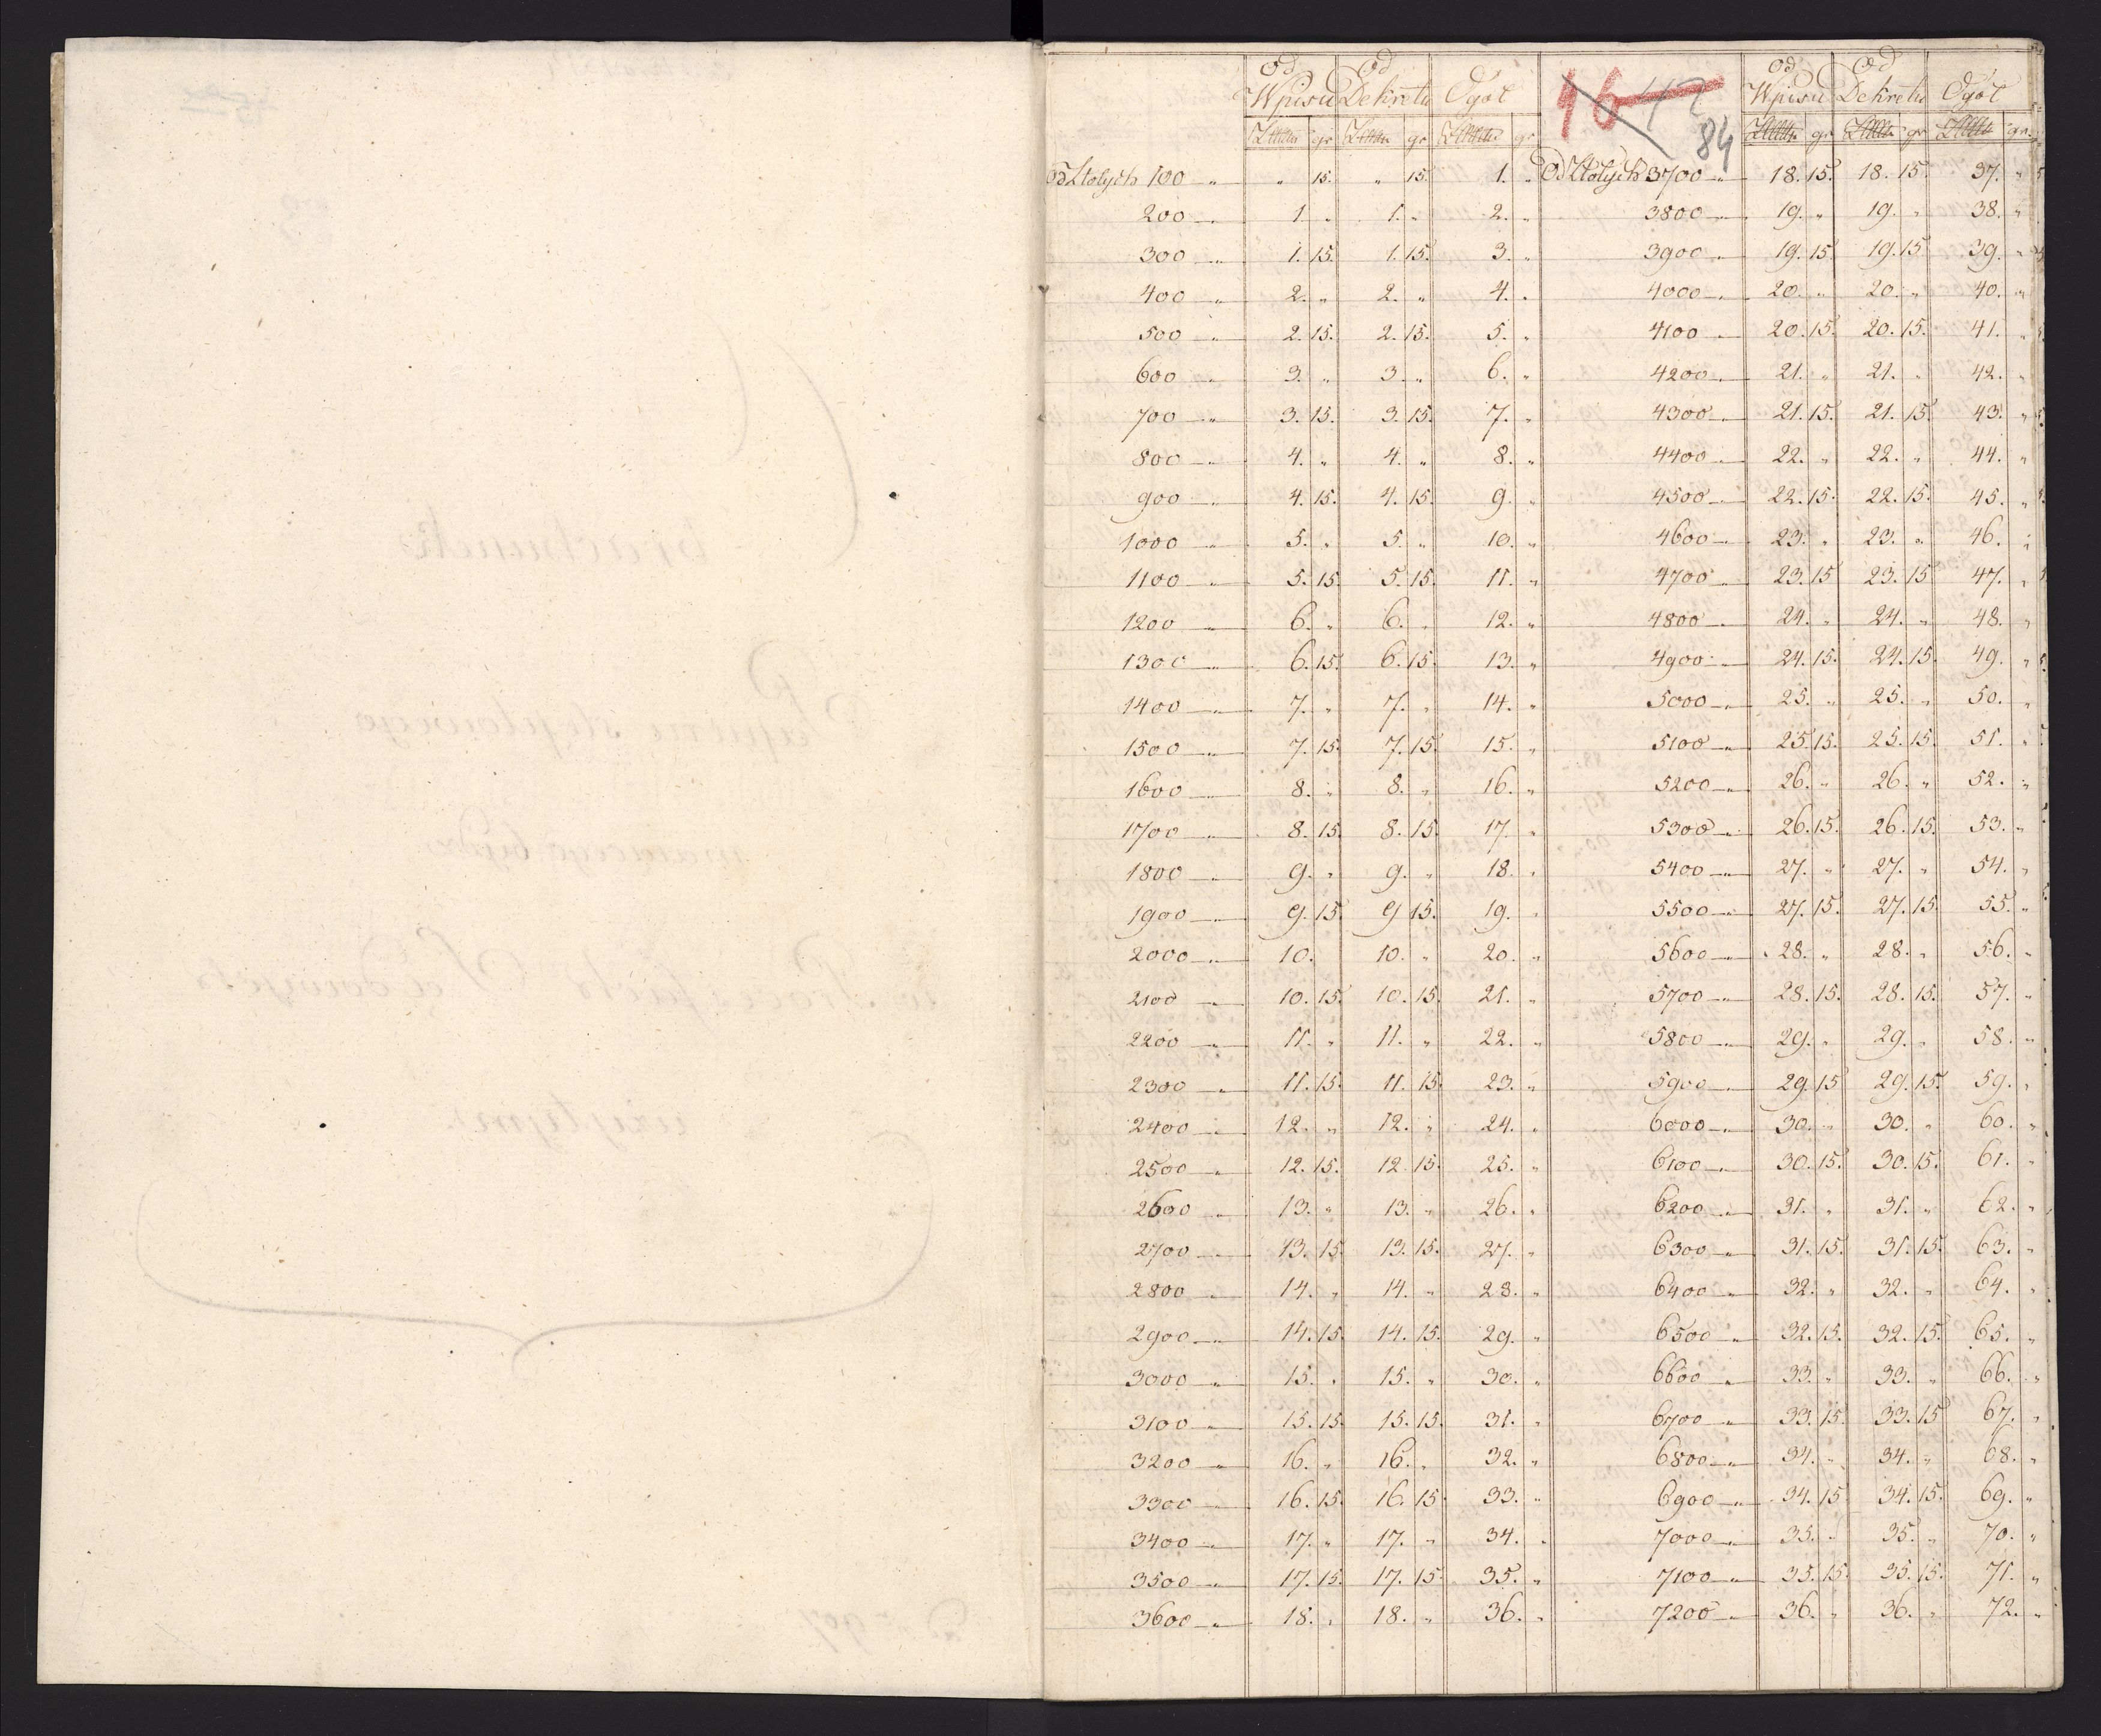 od Wpisu od Dekretu Ogół 16 42 84 od Wpisu od Dekretu Ogół
gr gr gr gr gr gr
Od Złotych 100 „ „ 15. „ 15. 1. „ Od Złotych 3700 „ 18. 15. 18. 15. 37. „
200 „ 1. „ 1. „ 2. „ 3800 „ 19. „ 19. „ 38. „
300 „ 1. 15. 1. 15. 3. „ 3900 „ 19. 15. 19. 15 39. „
400 „ 2. „ 2. „ 4. „ 4000 „ 20. „ 20. „ 40. „
500 „ 2. 15. 2. 15. 5. „ 4100 „ 20. 15. 20. 15. 41. „
600 „ 3. „ 3. „ 6. „ 4200 „ 21. „ 21. „ 42. „
700 „ 3. 15. 3. 15. 7. „ 4300 „ 21. 15. 21. 15. 43. „
800 „ 4. „ 4. „ 8. „ 4400 „ 22. „ 22. „ 44. „
900 „ 4. 15. 4. 15. 9. „ 4500 „ 22. 15. 22. 15. 45. „
1000 „ 5. „ 5. „ 10. „ 4600 „ 23. „ 23. „ 46. „
1100 „ 5. 15. 5. 15. 11. „ 4700 „ 23. 15 23. 15 47. „
1200 „ 6. „ 6. „ 12. „ 4800 „ 24. „ 24. „ 48. „
1300 „ 6. 15. 6. 15. 13. „ 4900 „ 24. 15. 24. 15. 49. „
1400 „ 7. „ 7. „ 14. „ 5000 „ 25. „ 25. „ 50. „
1500 „ 7. 15. 7. 15. 15. „ 5100 „ 25. 15. 25. 15. 51. „
1600 „ 8. „ 8. „ 16. „ 5200 „ 26. „ 26. „ 52. „
1700 „ 8. 15. 8. 15. 17. „ 5300 „ 26. 15. 26. 15. 53. „
1800 „ 9. „ 9. „ 18. „ 5400 „ 27. „ 27. „ 54. „
1900 „ 9. 15. 9 15. 19. „ 5500 „ 27. 15. 27. 15. 55. „
2000 „ 10. 10. „ 20. „ 5600 „ 28. „ 28. „ 56. „
2100 „ 10. 15. 10. 15. 21. „ 5700 „ 28. 15. 28. 15. 57. „
2200 „ 11. „ 11. „ 22. „ 5800 „ 29. „ 29. „ 58. „
2300 „ 11. 15. 11. 15. 23. „ 5900 „ 29. 15 29. 15. 59. „
2400 „ 12. „ 12. „ 24. „ 6000 „ 30. „ 30. „ 60. „
2500 „ 12. 15. 12. 15. 25. „ 6100 „ 30. 15. 30. 15. 61. „
2600 „ 13. „ 13. „ 26. „ 6200 „ 31. „ 31. „ 62. „
2700 „ 13. 15. 13. 15. 27. „ 6300 „ 31. 15. 31. 15. 63. „
2800 „ 14. „ 14. „ 28. „ 6400 „ 32. „ 32. „ 64. „
2900 „ 14. 15. 14. 15. 29. „ 6500 „ 32. 15. 32. 15. 65. „
3000 „ 15. „ 15. „ 30. „ 6600 „ 33. „ 33. „ 66. „
3100 „ 15. 15. 15. 15. 31. „ 6700 „ 33. 15. 33. 15 67. „
3200 „ 16. „ 16. „ 32. „ 6800 „ 34. „ 34. „ 68. „
3300 „ 16. 15. 16. 15. 33. „ 6900 „ 34. 15 34. 15. 69. „
3400 „ 17. „ 17. „ 34. „ 7000 „ 35. „ 35. „ 70. „
3500 „ 17. 15. 17. 15. 35. „ 7100 „ 35. 15. 35. 15. 71. „
3600 „ 18. „ 18. „ 36. „ 7200 „ 36. „ 36. „ 72. „